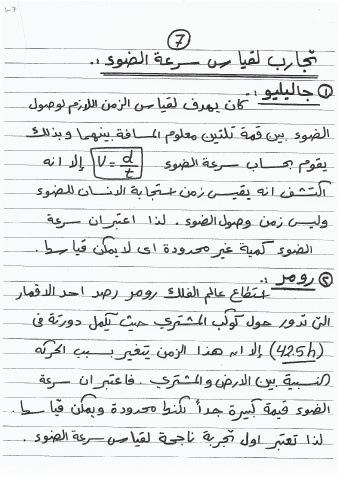 ٧
تجارب لقياس سرعة الضوء :.
① جاليليو :. كان يهدف لقياس الزمن اللازم لوصول
الضوء بين قمة تلتين معلوم المسافة بينهما وبذلك
يقوم بحساب سرعة الضوء V = d/t إلا انه
اكتشف انه يقيس زمن استجابة الانسان للضوء
وليس زمن وصول الضوء . لذا اعتبر ان سرعة
الضوء كمية غير محدودة اى لا يمكن قياسها .
② رومر :.
استطاع عالم الفلك رومر رصد احد الاقمار
التى تدور حول كوكب المشتري حيث يكمل دورتة فى
(42.5h) إلا ان هذا الزمن يتغير بسبب الحركه
النسبية بين الارض والمشتري . فاعتبر ان سرعة
الضوء قيمة كبيرة جداً لكنها محدودة ويمكن قياسها .
لذا تعتبر اول تجربة ناجحة لقياس سرعة الضوء .